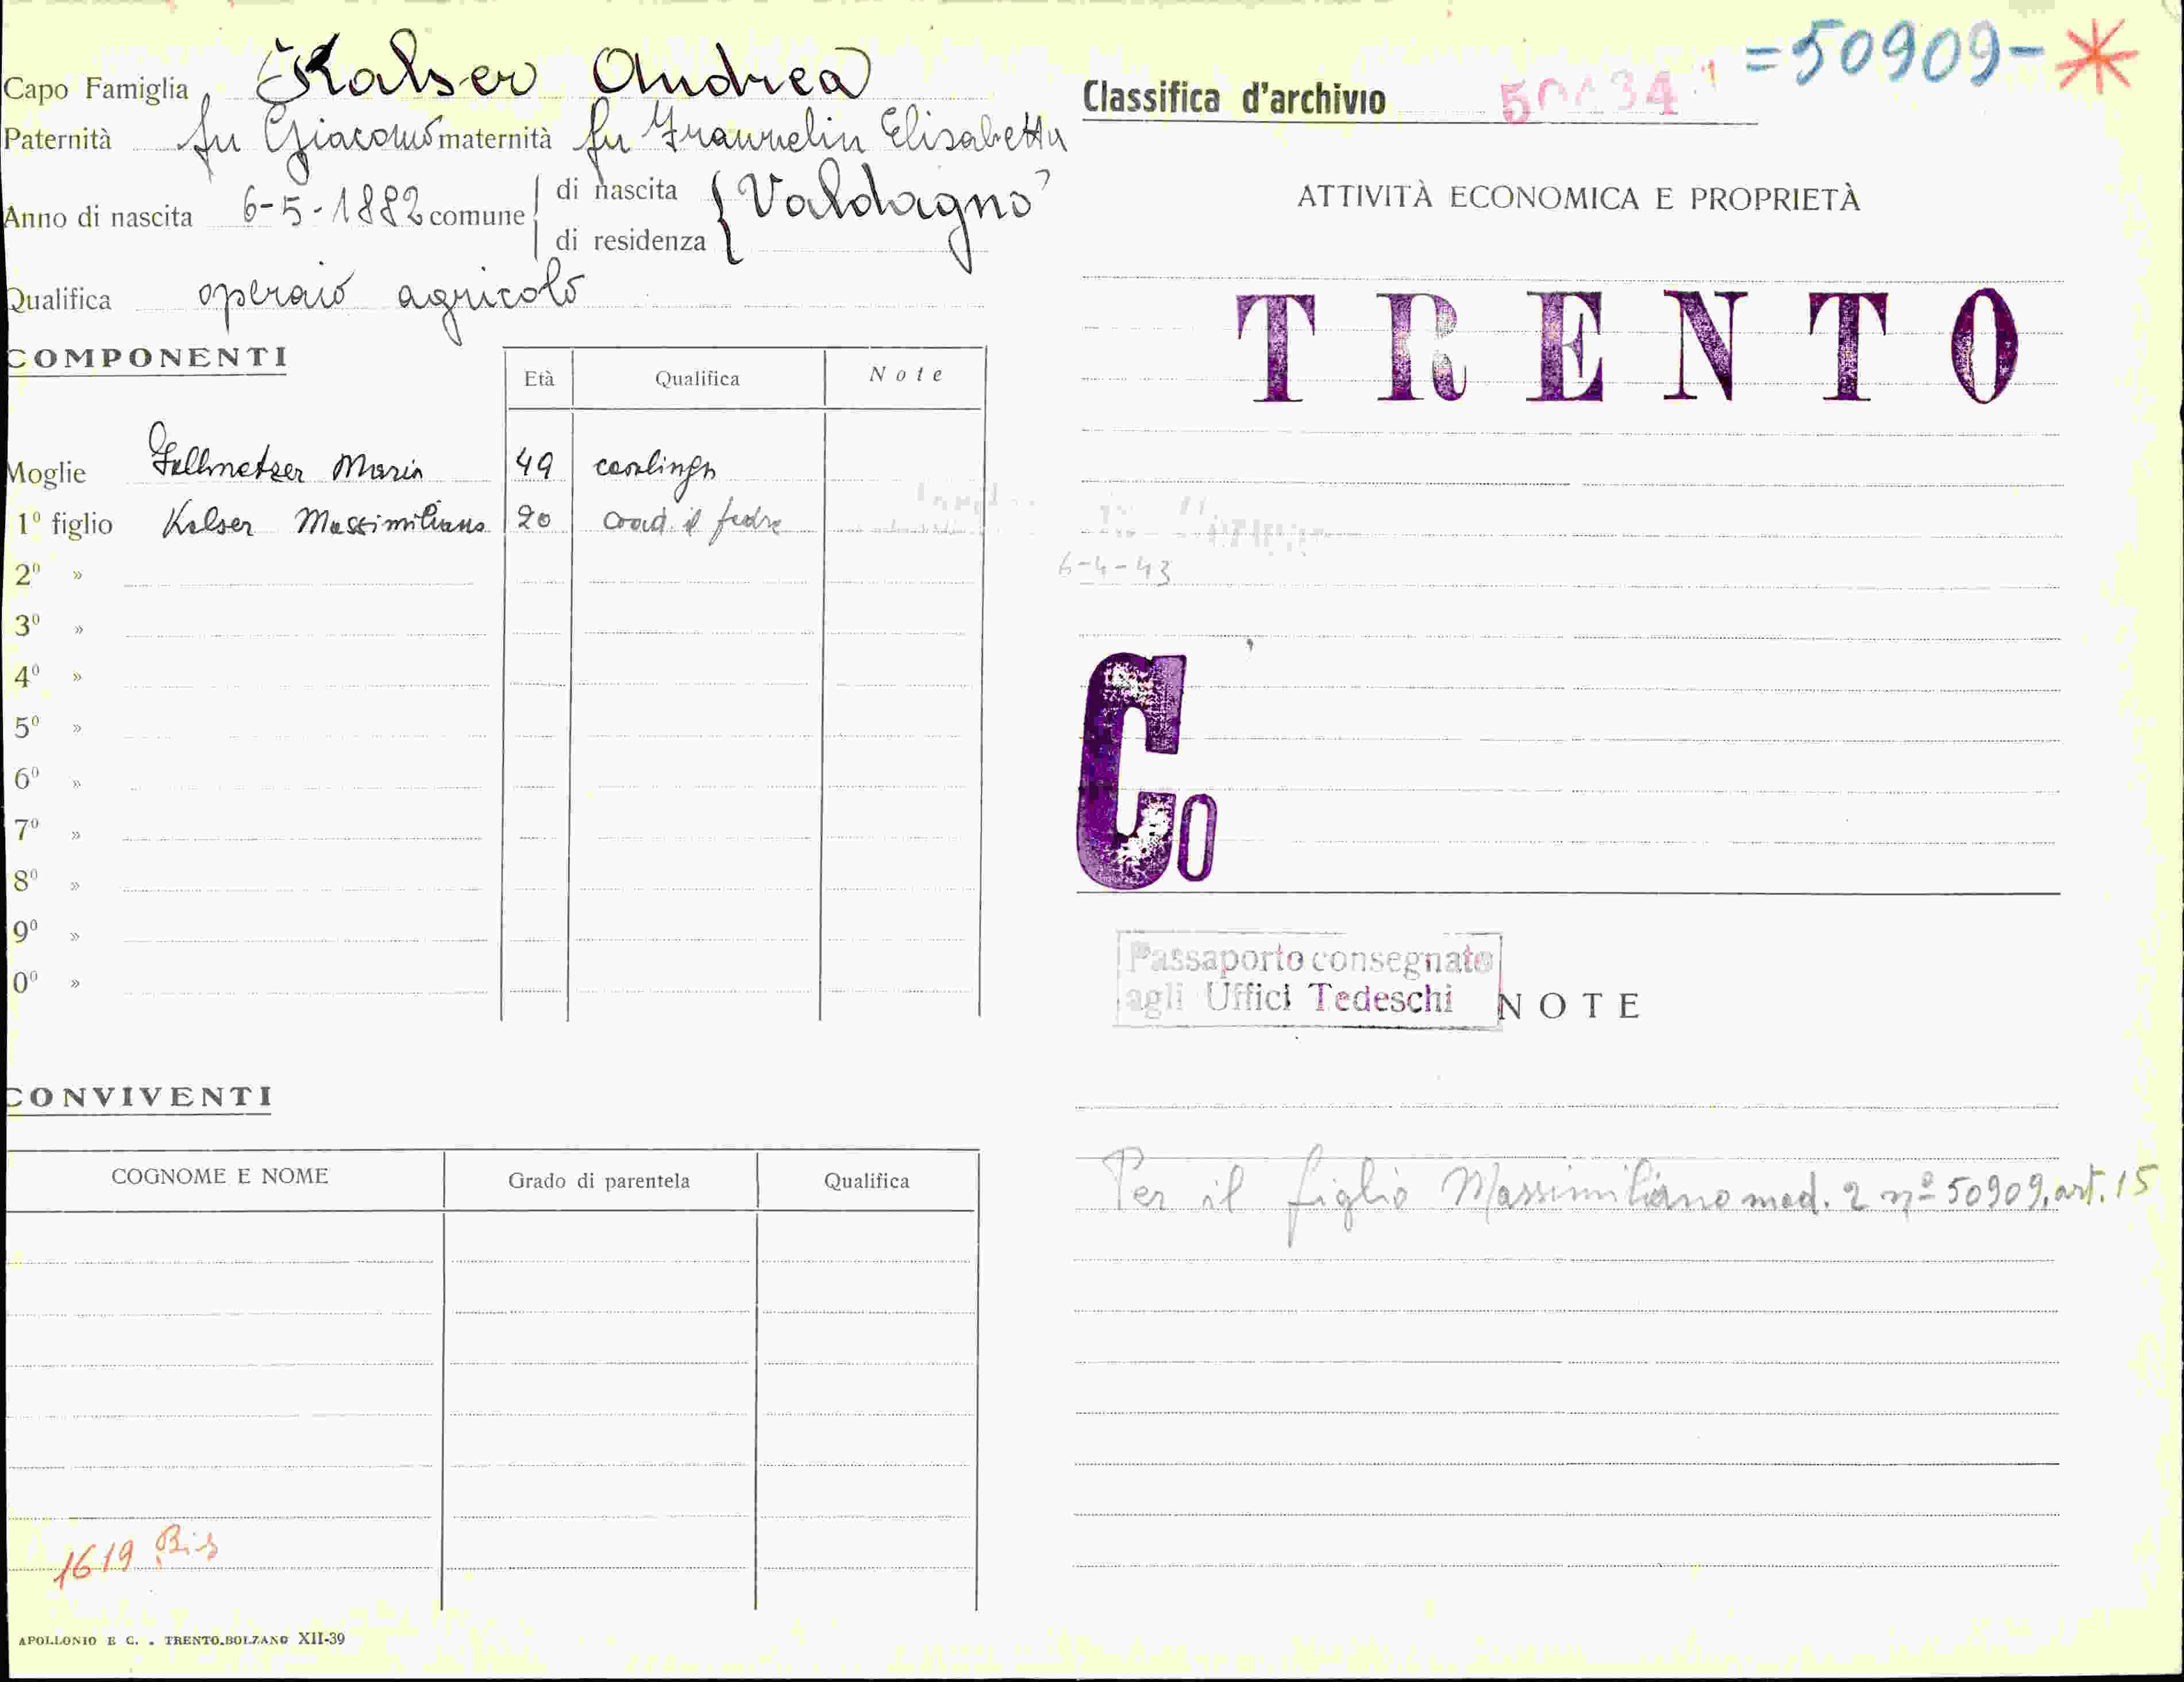 Capo Famiglia Kalser Andrea
Paternità fu Giacomo maternità fu Elisabetta
Anno di nascita 6-5-1882 comune di nascita Valdagno
di residenza
Qualifica operaio agricolo
COMPONENTI
Età Qualifica Note
Moglie Maria 49 casalinga
1º figlio Kalser Massimiliano 20 il
2º »
3º »
4º »
5º »
6º »
7º »
8º »
9º »
0º »
CONVIVENTI
COGNOME E NOME Grado di parentela Qualifica
1619 Bis
APOLLONIO E C. - TRENTO-BOLZANO XII-39
=50909-*
Classifica d'archivio
ATTIVITÀ ECONOMICA E PROPRIETÀ
TRENTO
6-4-43
Co
Passaporto consegnato
agli Uffici Tedeschi
NOTE
Per il figlio Massimiliano mod. 2 nº 50909, art. 15